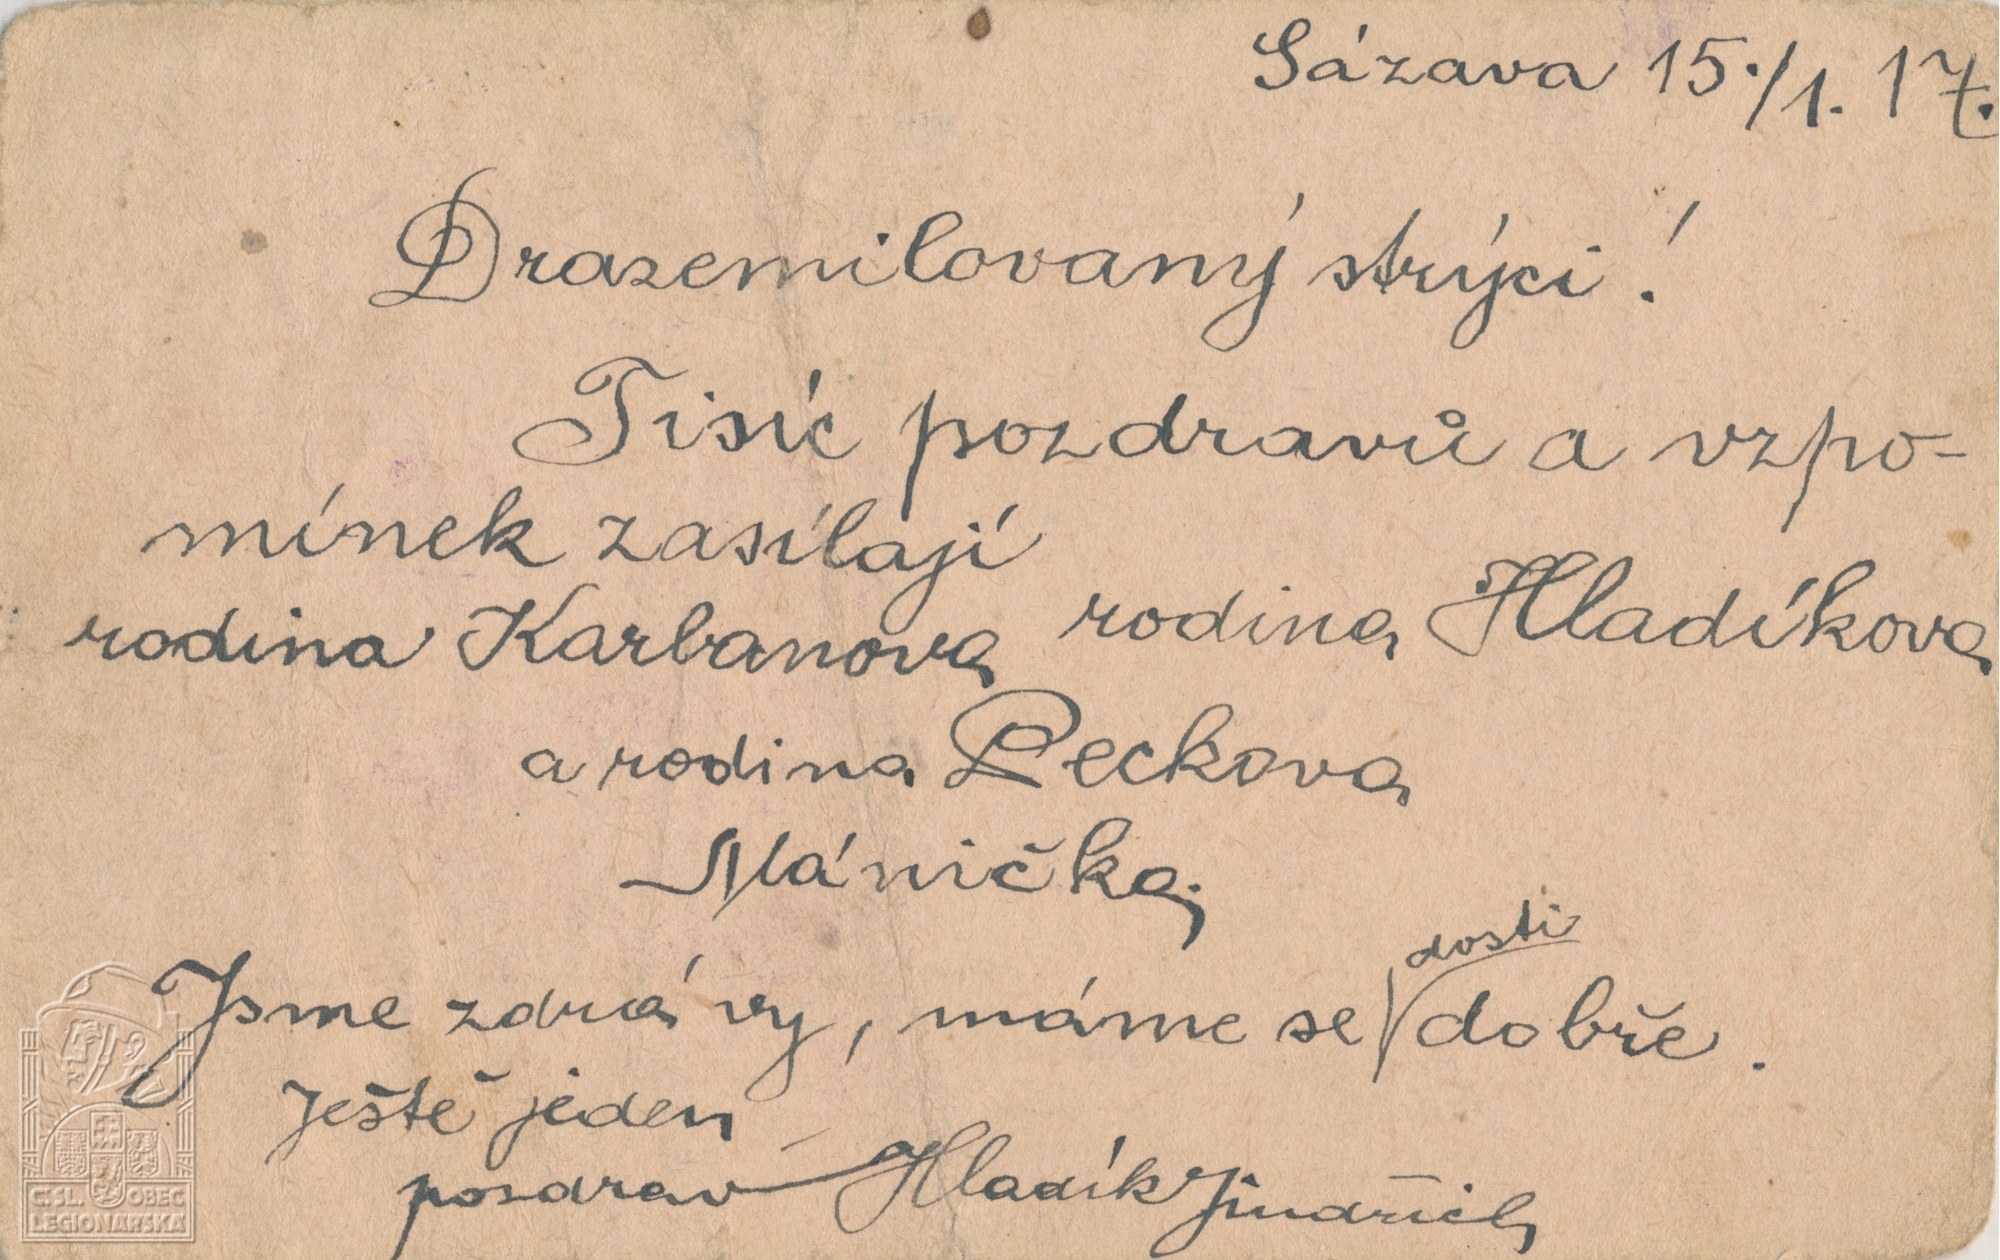 Sázava 15./1. 17.
Drazemilovaný strýci!
Tisíc pozdravů a vzpo-
mínek zasílají
rodina Karbanova rodina Hladíkova
a rodina Peckova
Mánička;
dosti
Jsme zdrávy, máme se dobře.
Ještě jeden
pozdrav Hladík Jindřich
Č.SL. OBEC
LEGIONÁŘSKÁ